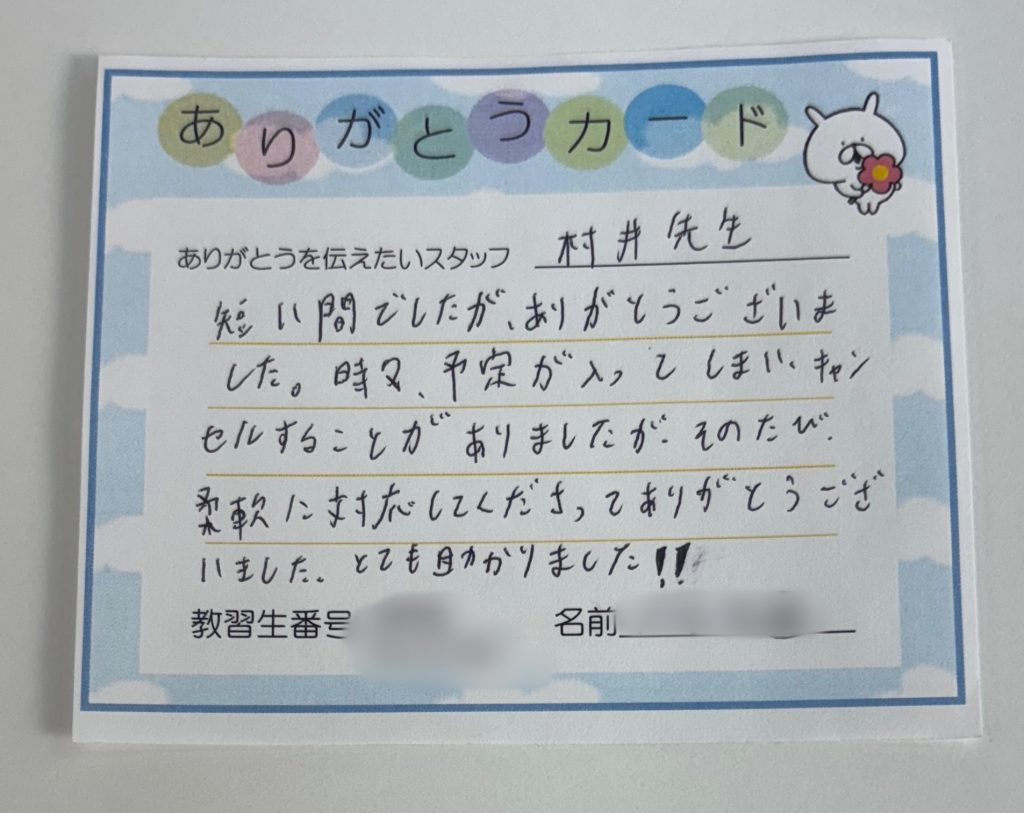 ありがとうカード
ありがとうを伝えたいスタッフ 村井先生
短い間でしたが、ありがとうございま
した。時々、予定が入ってしまい、キャン
セルすることがありましたが、そのたび、
柔軟に対応してくださってありがとうござ
いました。とても助かりました!!
教習生番号
名前